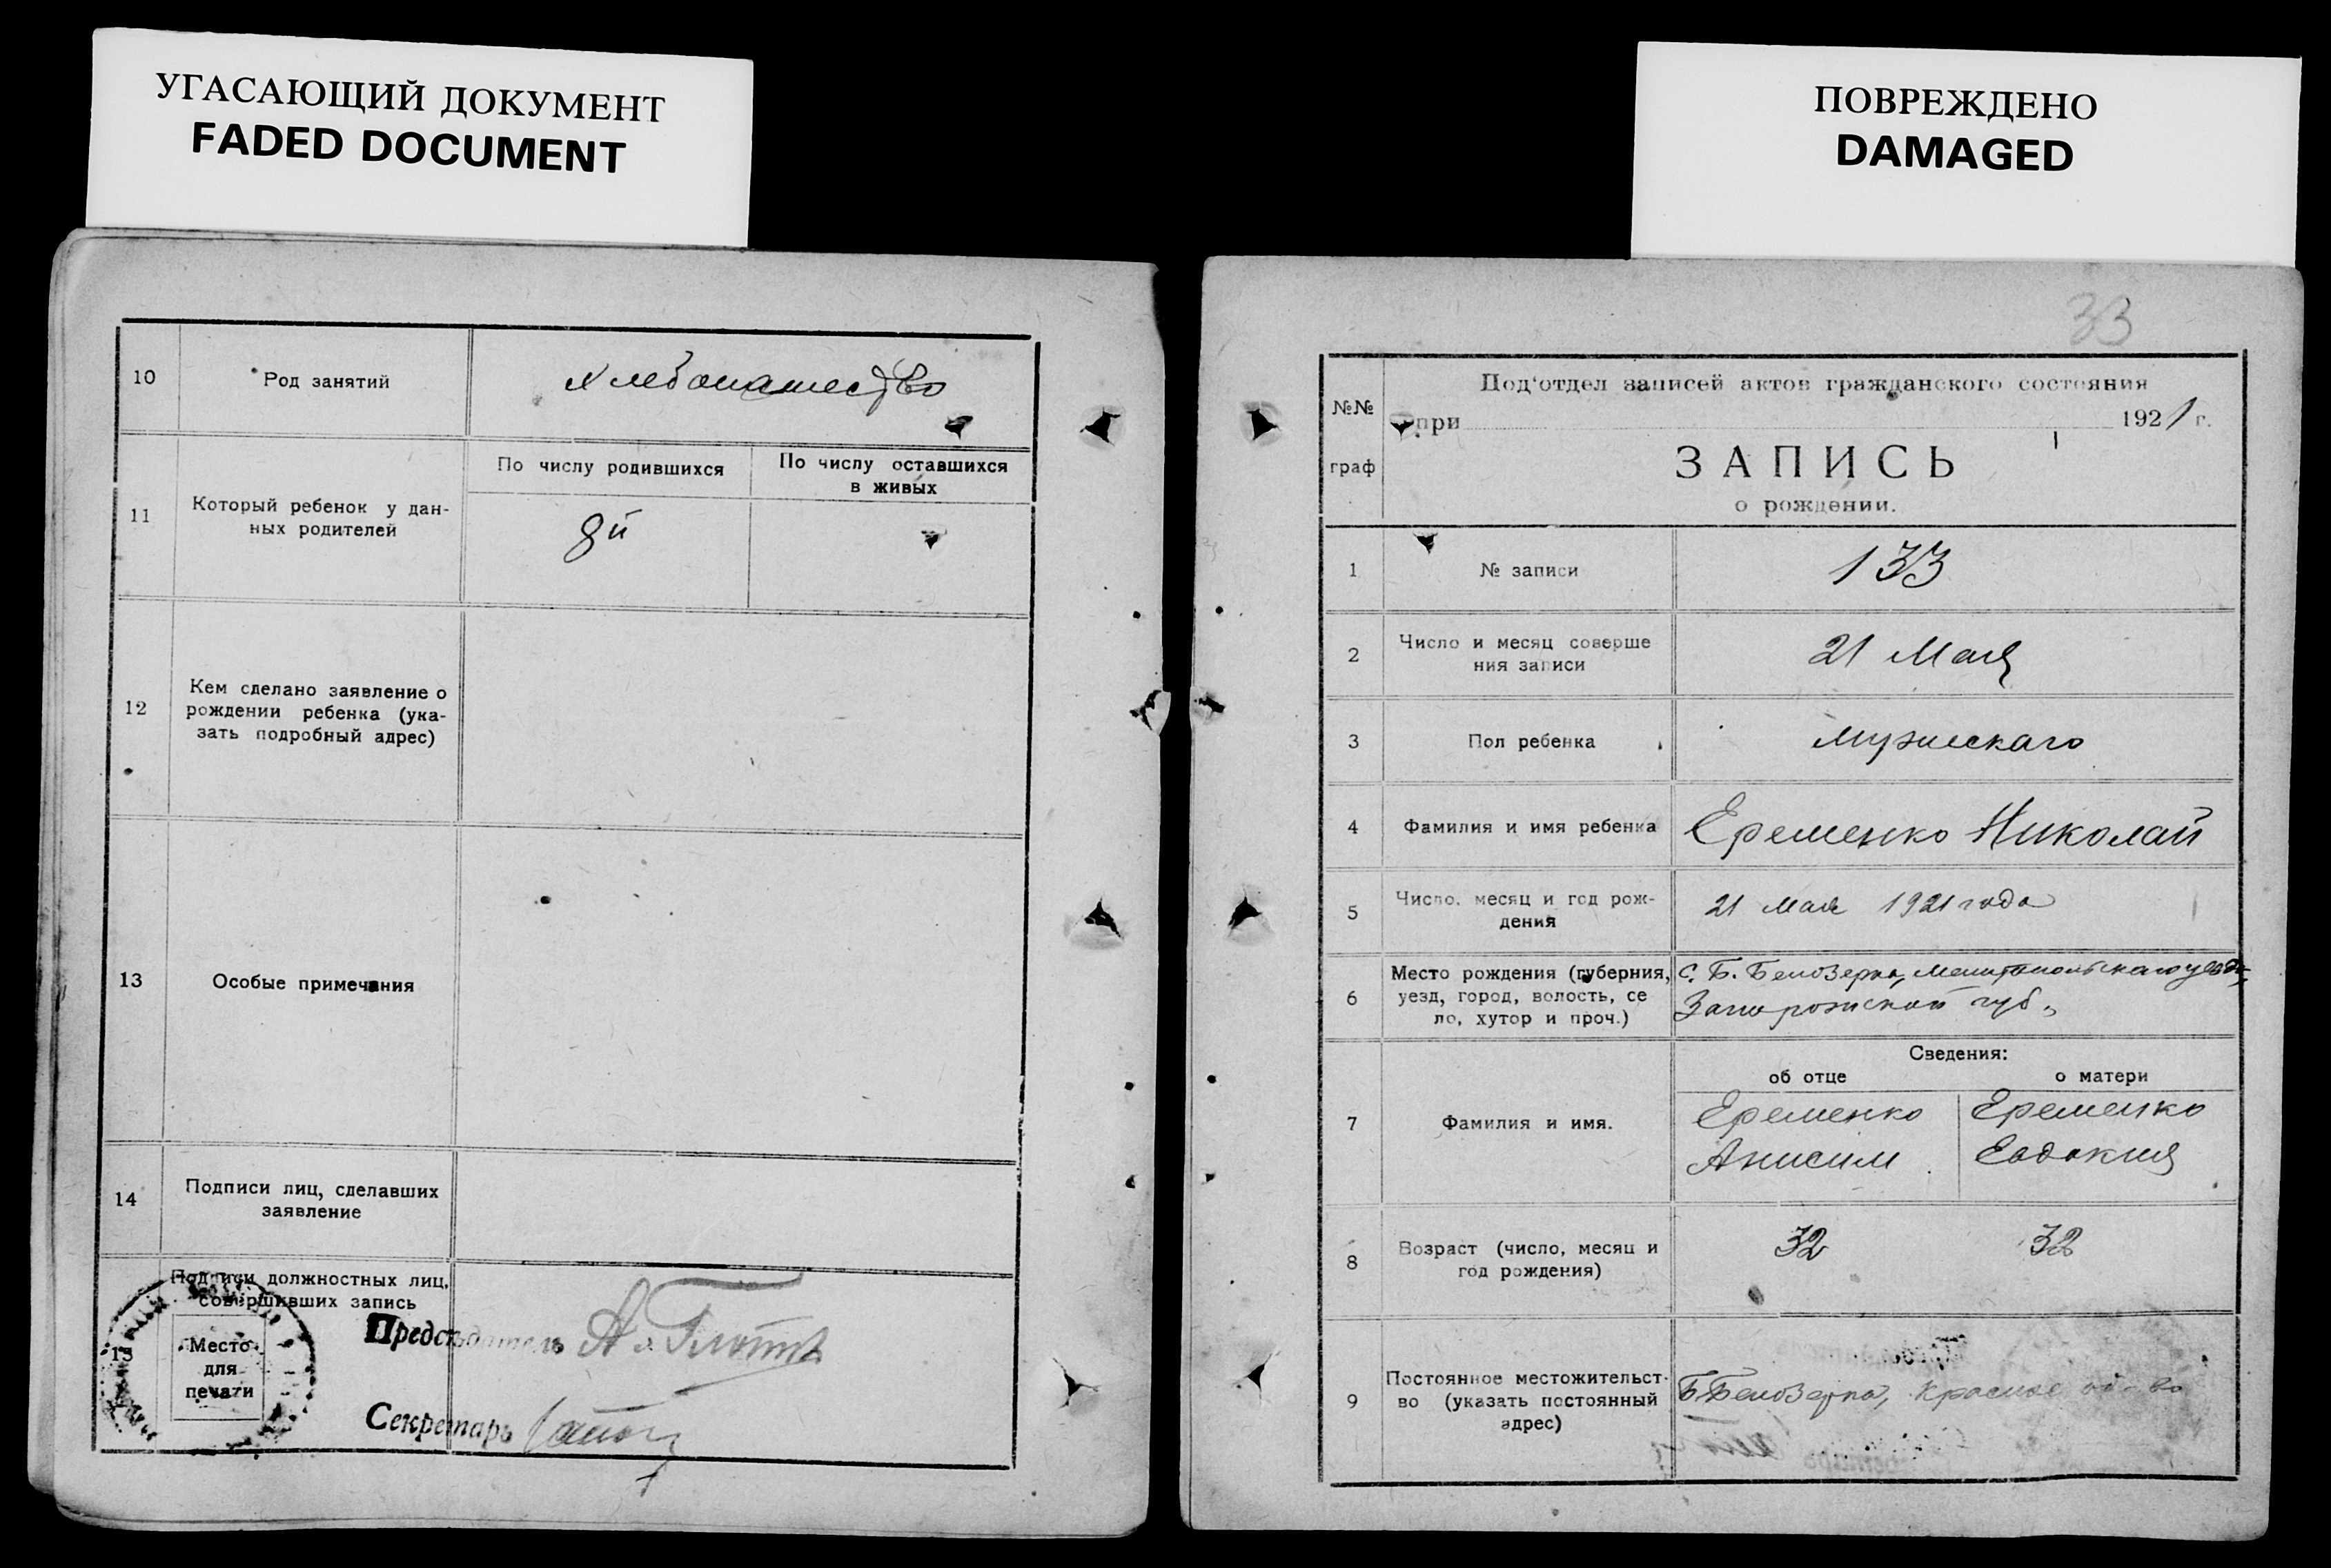 УГАСАЮЩИЙ ДОКУМЕНТ
FADED DOCUMENT
10
Род занятий
Хлебопашество
11
Который ребенок у дан-
ных родителей
По числу родившихся
По числу оставшихся
в живых
8й
12
Кем сделано заявление о
рождении ребенка (ука-
зать подробный адрес)
13
Особые примечания
14
Подписи лиц, сделавших
заявление
15
Подписи должностных лиц,
совершивших запись
Место
для
печати
Председатель А.
Секретарь
ПОВРЕЖДЕНО
DAMAGED
33
№№
граф
Под‘отдел записей актов гражданского состояния
при 1921 г.
ЗАПИСЬ
о рождении.
1
№ записи
133
2
Число и месяц соверше
ния записи
21 Мая
3
Пол ребенка
Мужескаго
4
Фамилия и имя ребенка
Еременко Николай
5
Число, месяц и год рож-
дения
21 Мая 1921 года
6
Место рождения (губерния,
уезд, город, волость, се
ло, хутор и проч.)
С. Б. Белозерка, Мелитопольскаго уезда,
Запорожской губ.,
Сведения:
об отце
о матери
7
Фамилия и имя.
Еременко
Анисим
Еременко
Евдокия
8
Возраст (число, месяц и
год рождения)
32
32
9
Постоянное местожительст-
во (указать постоянный
адрес)
Б. Белозерка, Красное